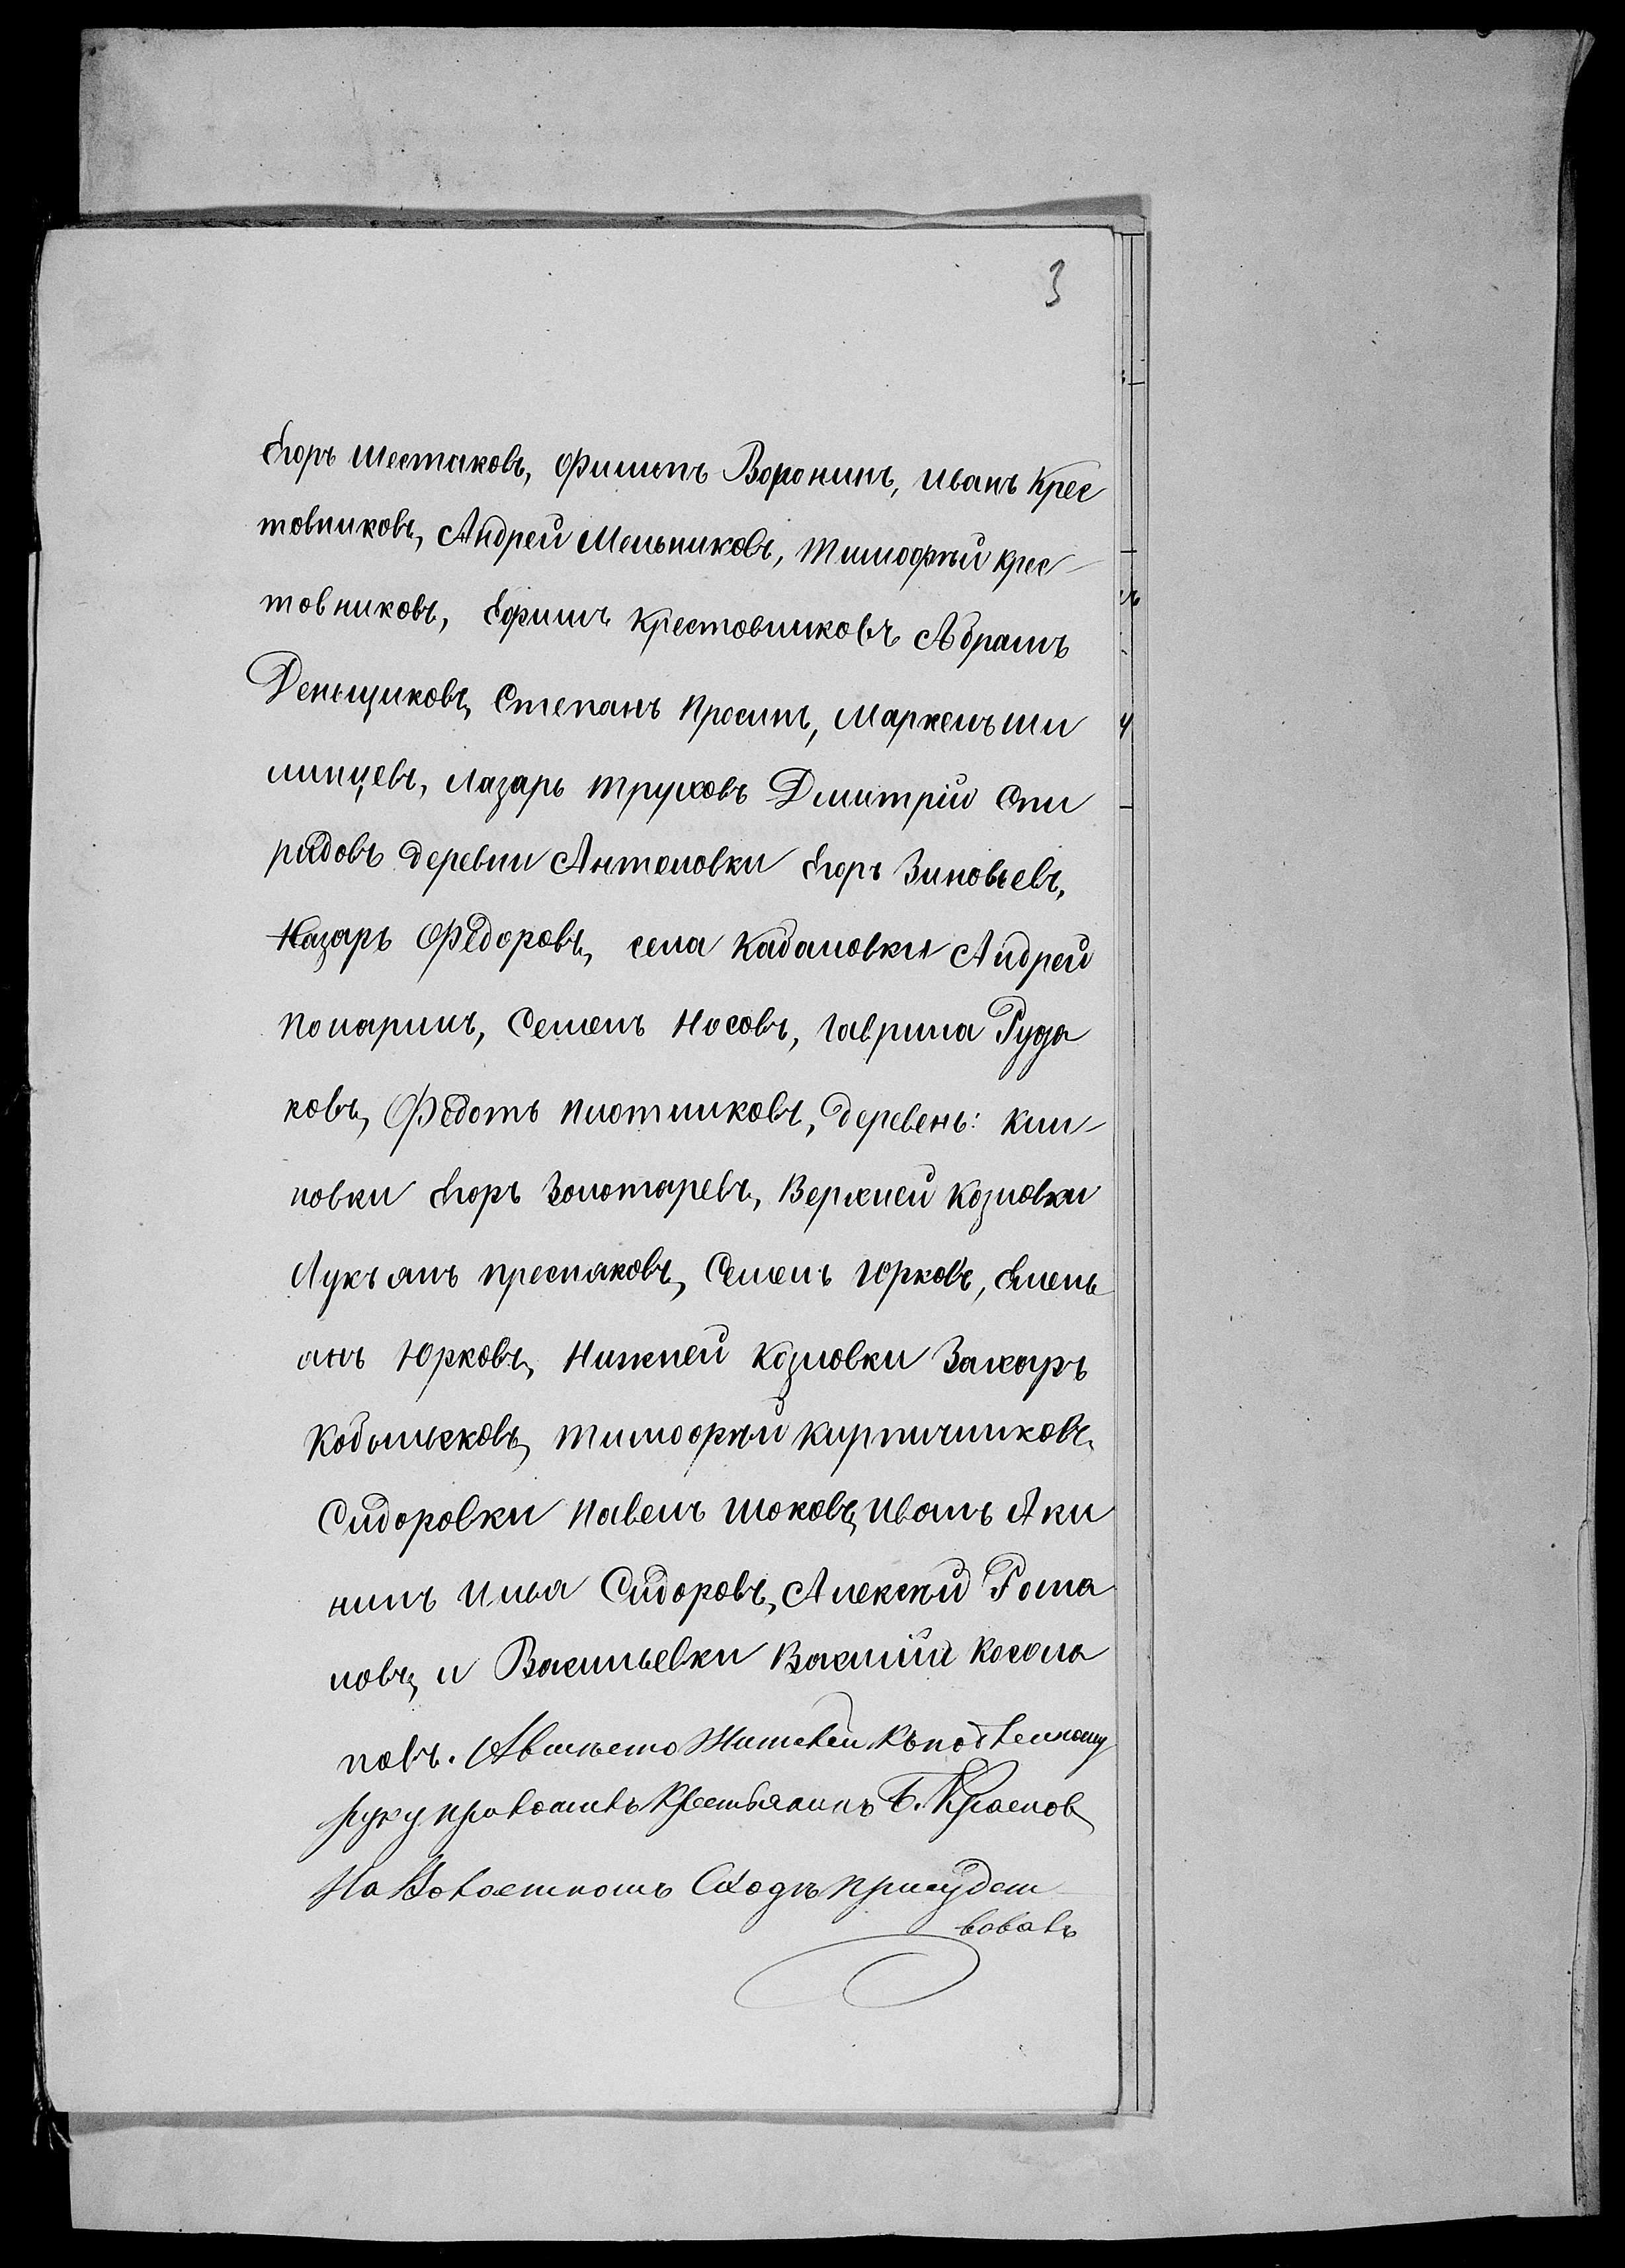 3
Егоръ Шестаковъ, Филипъ Воронинъ, Иванъ Крес
товниковъ, Андрей Мельниковъ, Тимофѣй Крес-
товниковъ, Ефимъ Крестовниковъ Абрамъ
Деньщиковъ, Степанъ Просинъ, Маркелъ Ши
линцевъ, Лазарь Труховъ Дмитрій Спи
ридовъ деревни Антоновки Егоръ Зиновьевъ,
Назаръ Федоровъ, села Кадановки Андрей
Понаринъ, Семенъ Носовъ, Гаврила Руда
ковъ, Федотъ Плотниковъ, деревень: Кли-
новки Егоръ Золотаревъ, Верхней Козловки
Лукъянъ Пресняковъ, Семенъ Юрковъ, Емель
янъ Юрковъ, Нижней Козловки Захаръ
Кобыльсковъ, Тимофѣй Кирпичниковъ.
Сидоровки Павелъ Шоковъ, Иванъ Аки
нинъ Илья Сидоровъ, Алексѣй Рома
новъ, и Васильевки Василій Косола
повъ. А вмѣсто Жителей Къ подленному
руку приложилъ Крестьянинъ Б. Краснов
На Волостномъ Сходѣ присудст
вовалъ